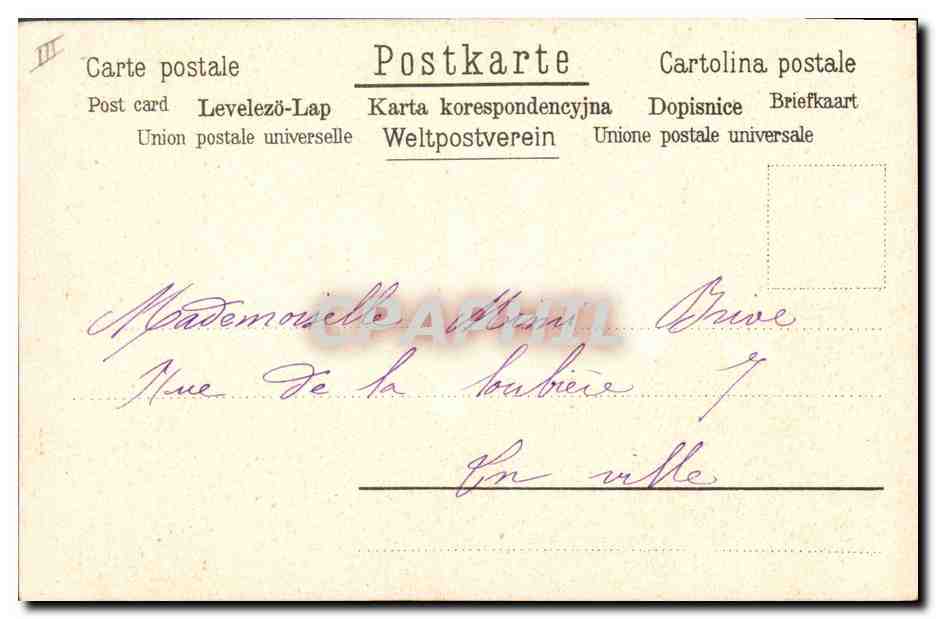 III
Carte postale Postkarte Cartolina postale
Post card Levelezö-Lap Karta korespondencyjna Dopisnice Briefkaart
Union postale universelle Weltpostverein Unione postale universale
Mademoiselle Mimi Brive
CPAPHIL
Rue de la loubière 7
En ville